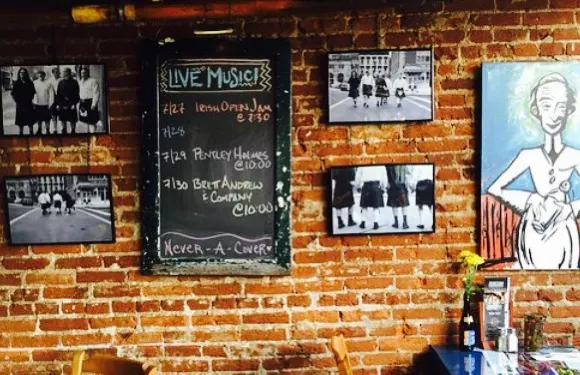 LIVE MUSIC!
7/27 IRISH OPEN JAM
@ 7:30
7/28
7/29 PENTLEY HOLMES
@ 10:00
7/30 BRETT ANDREW
& COMPANY
@ 10:00
NEVER-A-COVER